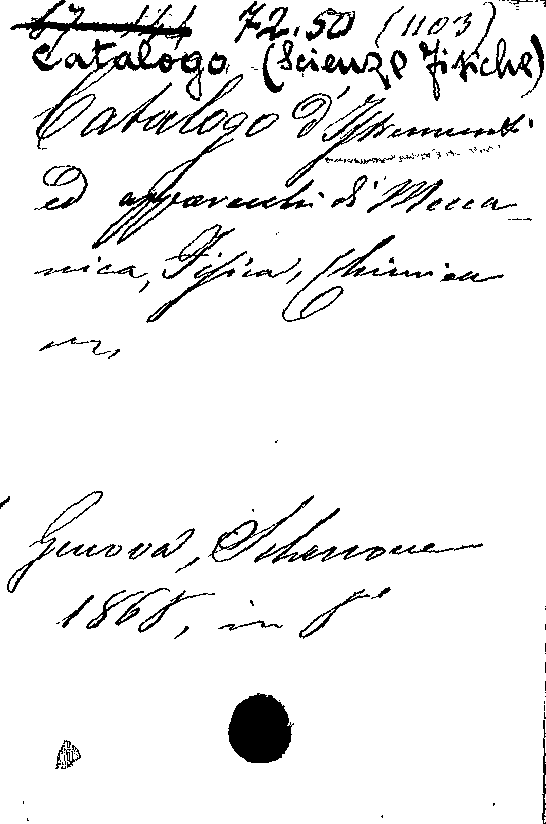 72.50 (1103)
Catalogo (Scienze Fisiche)
Catalogo d'Istrumenti
ed apparecchi di Mecca_
nica, Fisica, Chimica
Genova, Schenone
1868, in 8°